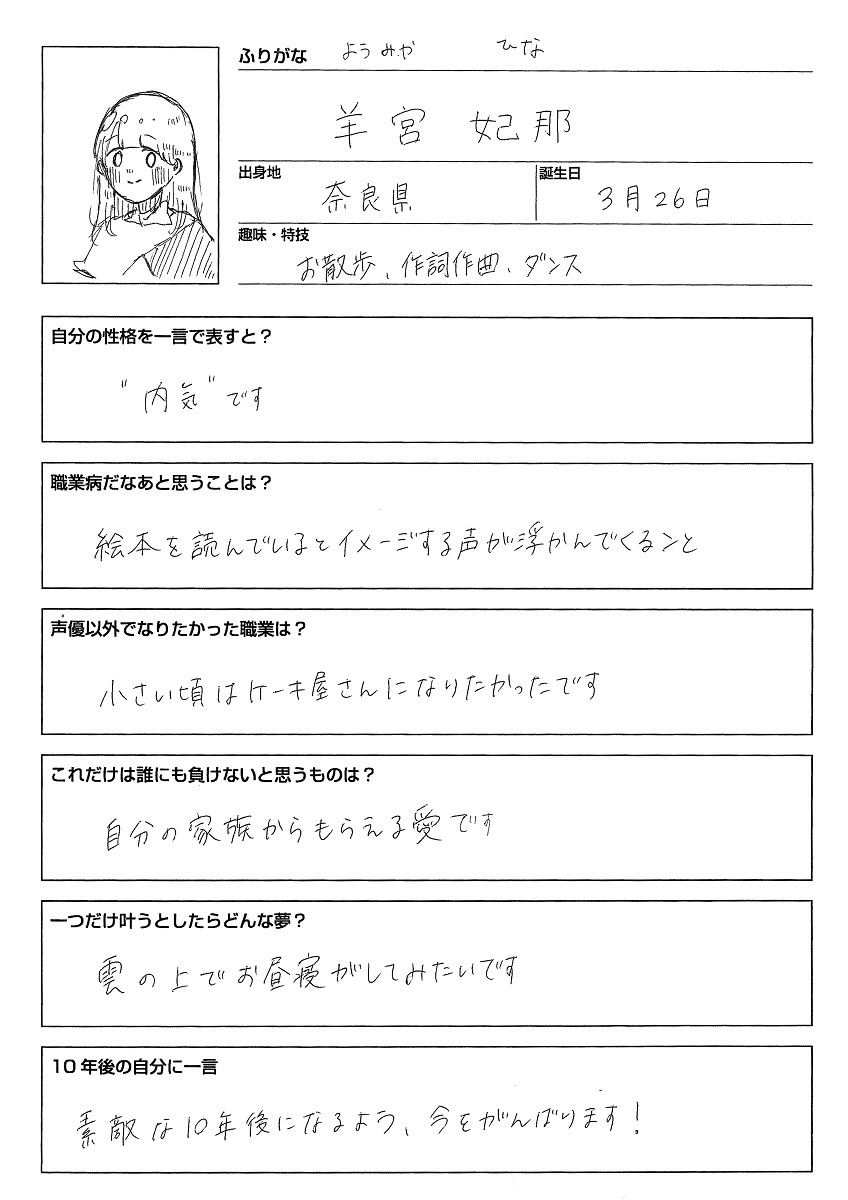 ふりがな ようみや ひな
羊宮 妃那
出身地 奈良県 誕生日 3月26日
趣味・特技
お散歩、作詞作曲、ダンス
自分の性格を一言で表すと？
"内気"です
職業病だなあと思うことは？
絵本を読んでいるとイメージする声が浮かんでくるンと
声優以外でなりたかった職業は？
小さい頃はケーキ屋さんになりたかったです
これだけは誰にも負けないと思うものは？
自分の家族からもらえる愛です
一つだけ叶うとしたらどんな夢？
雲の上でお昼寝がしてみたいです
10年後の自分に一言
素敵な10年後になるよう、今をがんばります！